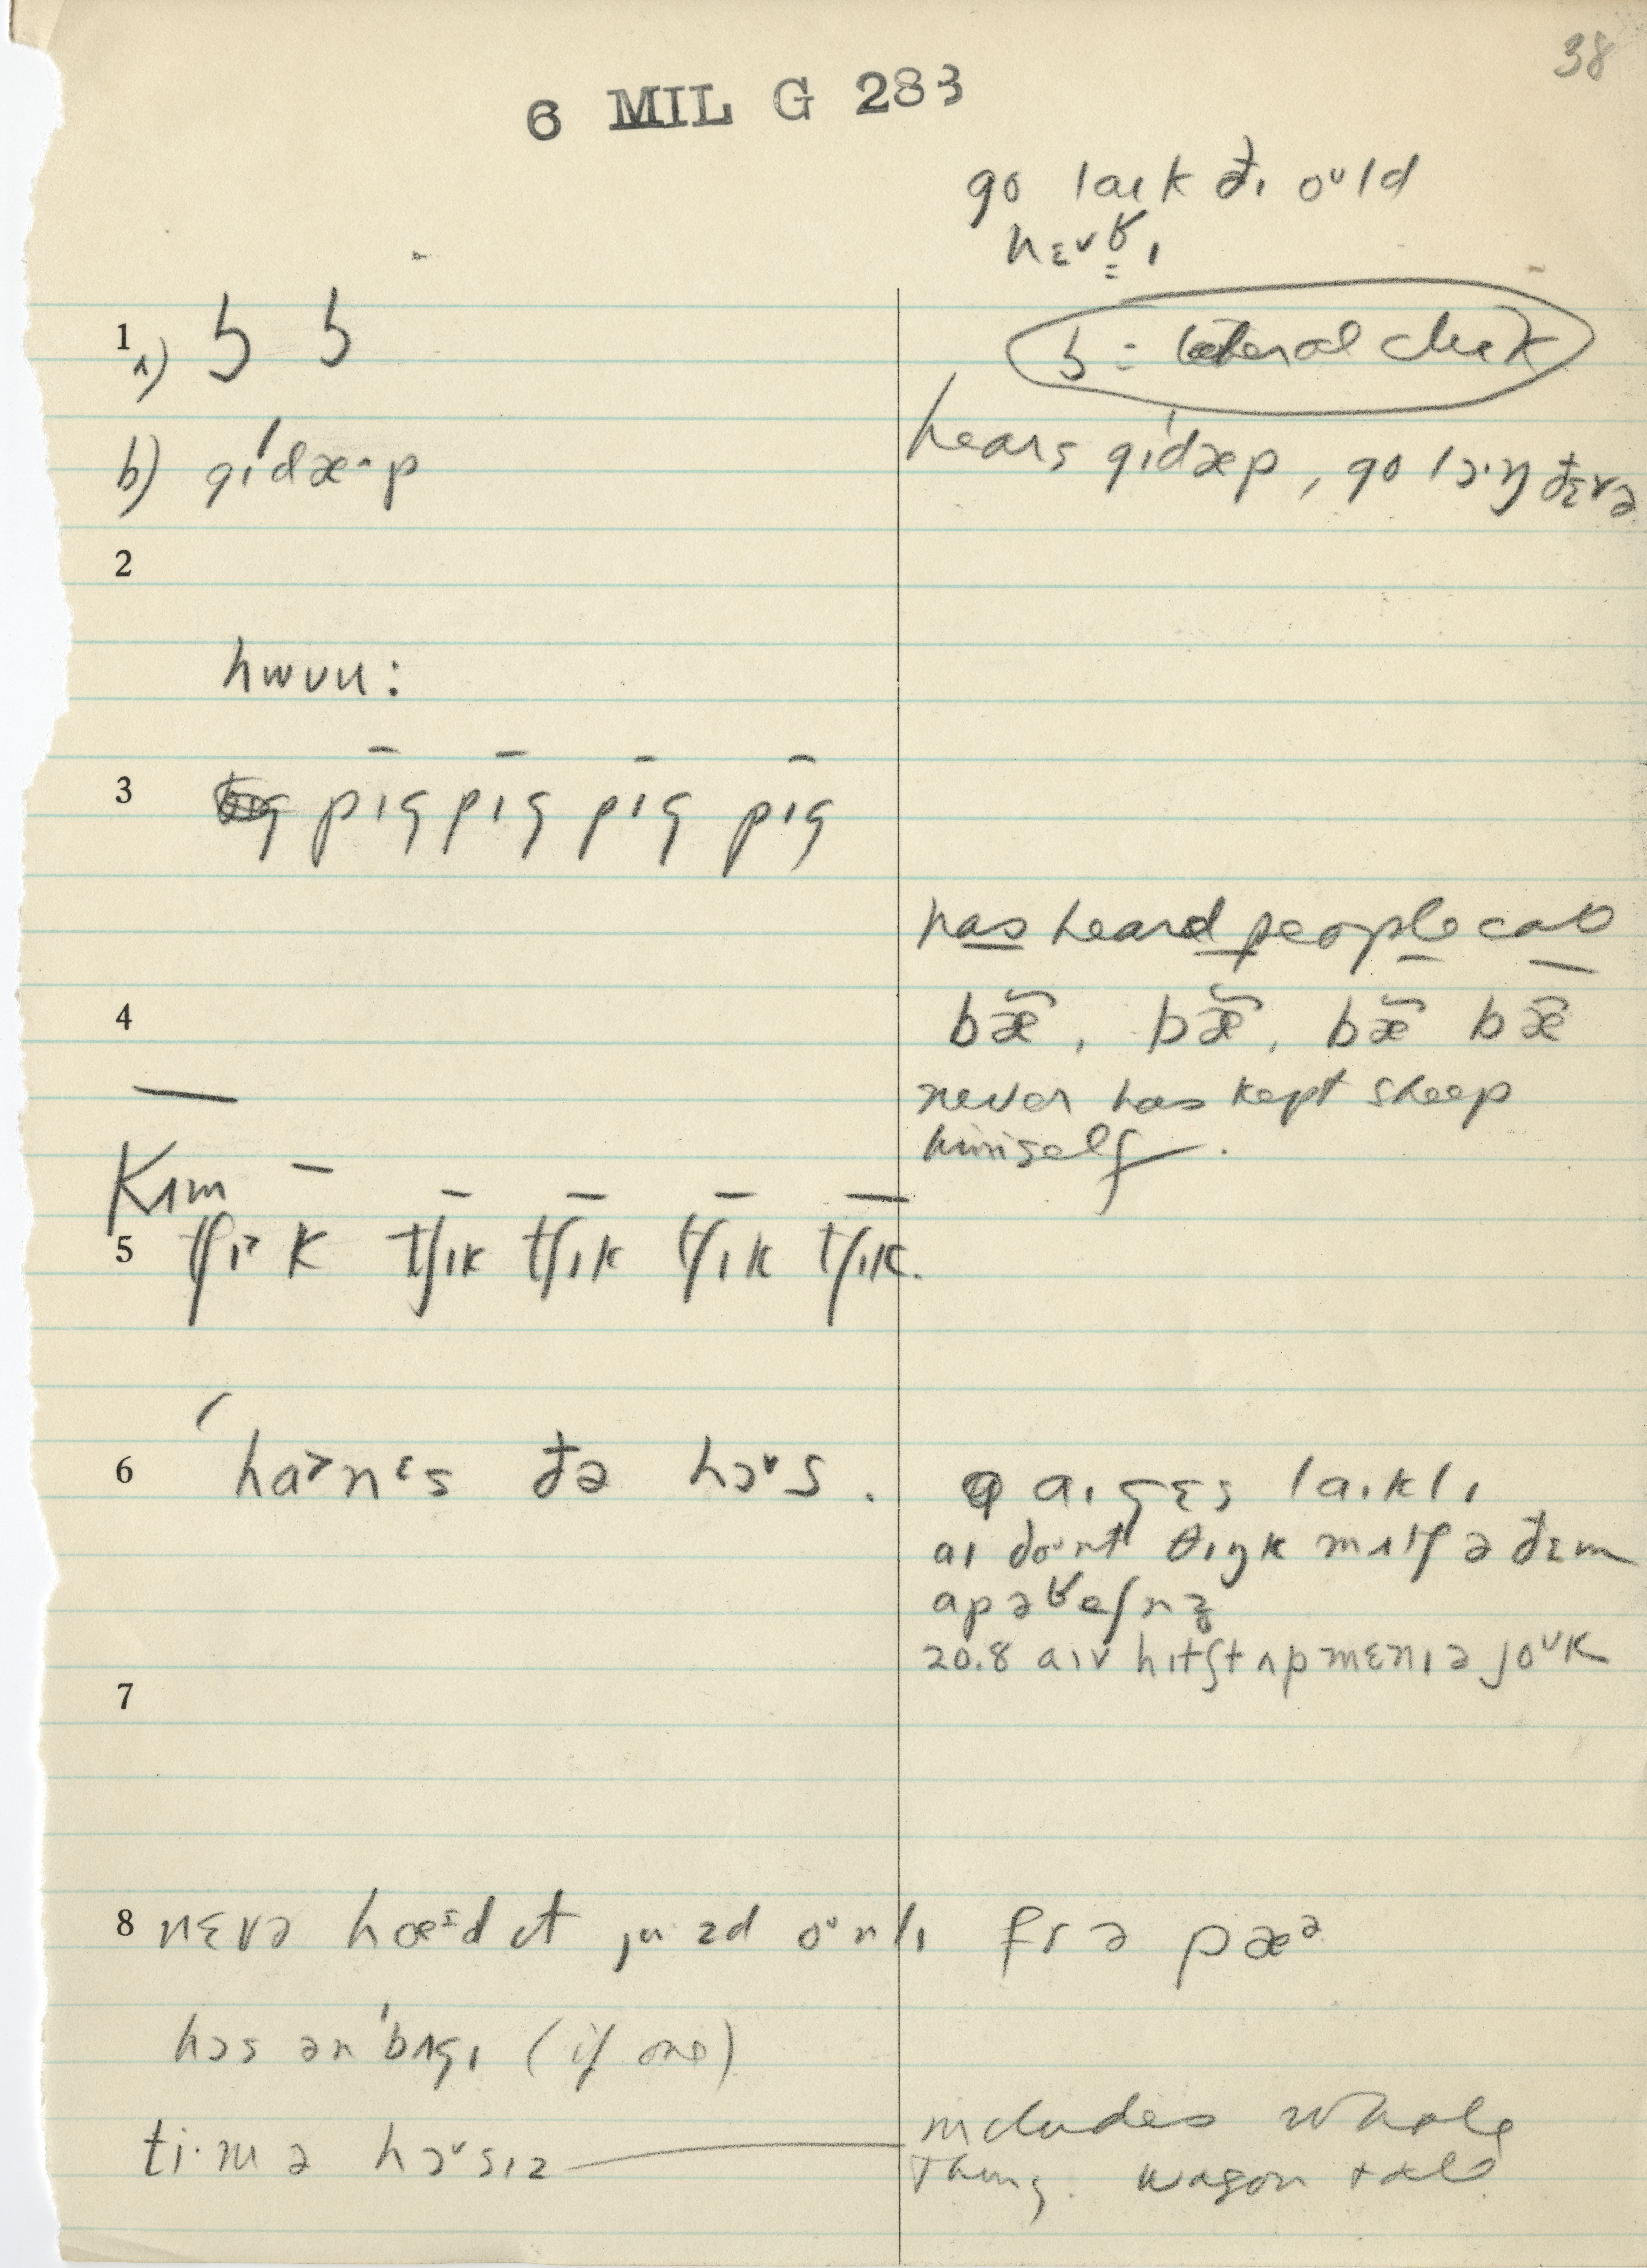 38
6 MIL G 283
go laɪk đɪ oᵘld
nɛvʁ̳ɪ
1 a) ʖ ʖ
ʖ = lateral click
b) gɪ́dæ·p
hears gɪ́dæp, go lɔ·ŋ đɛrə
2
hwʊu:
3 pɪ̄g pɪ̄g pɪ̄g pɪ̄g
has heard people call
4 bæ̃, bæ̃, bæ̃ bæ̃
never has kept sheep
himself.
Kɪm
5 tʃɪk tʃɪk tʃɪk tʃɪk tʃɪk.
6 ha˃nᵋs đə hɔᵛs.
aɪ gɛs laɪklɪ
aɪ doᵘnt θɪŋk mʌtʃ ə đɛm
apəʁeʃnz
20.8 aɪv hɪtʃt ʌp mɛnɪ ə joᵘk
7
8 nɛvə hæ d ɪt juzd oᵘnlɪ fr ə pæᵊ
hɔs ən ˈbʌgɪ (if one)
ti·m ə hɔᵛsɪz
includes whole
thing. wagon + all